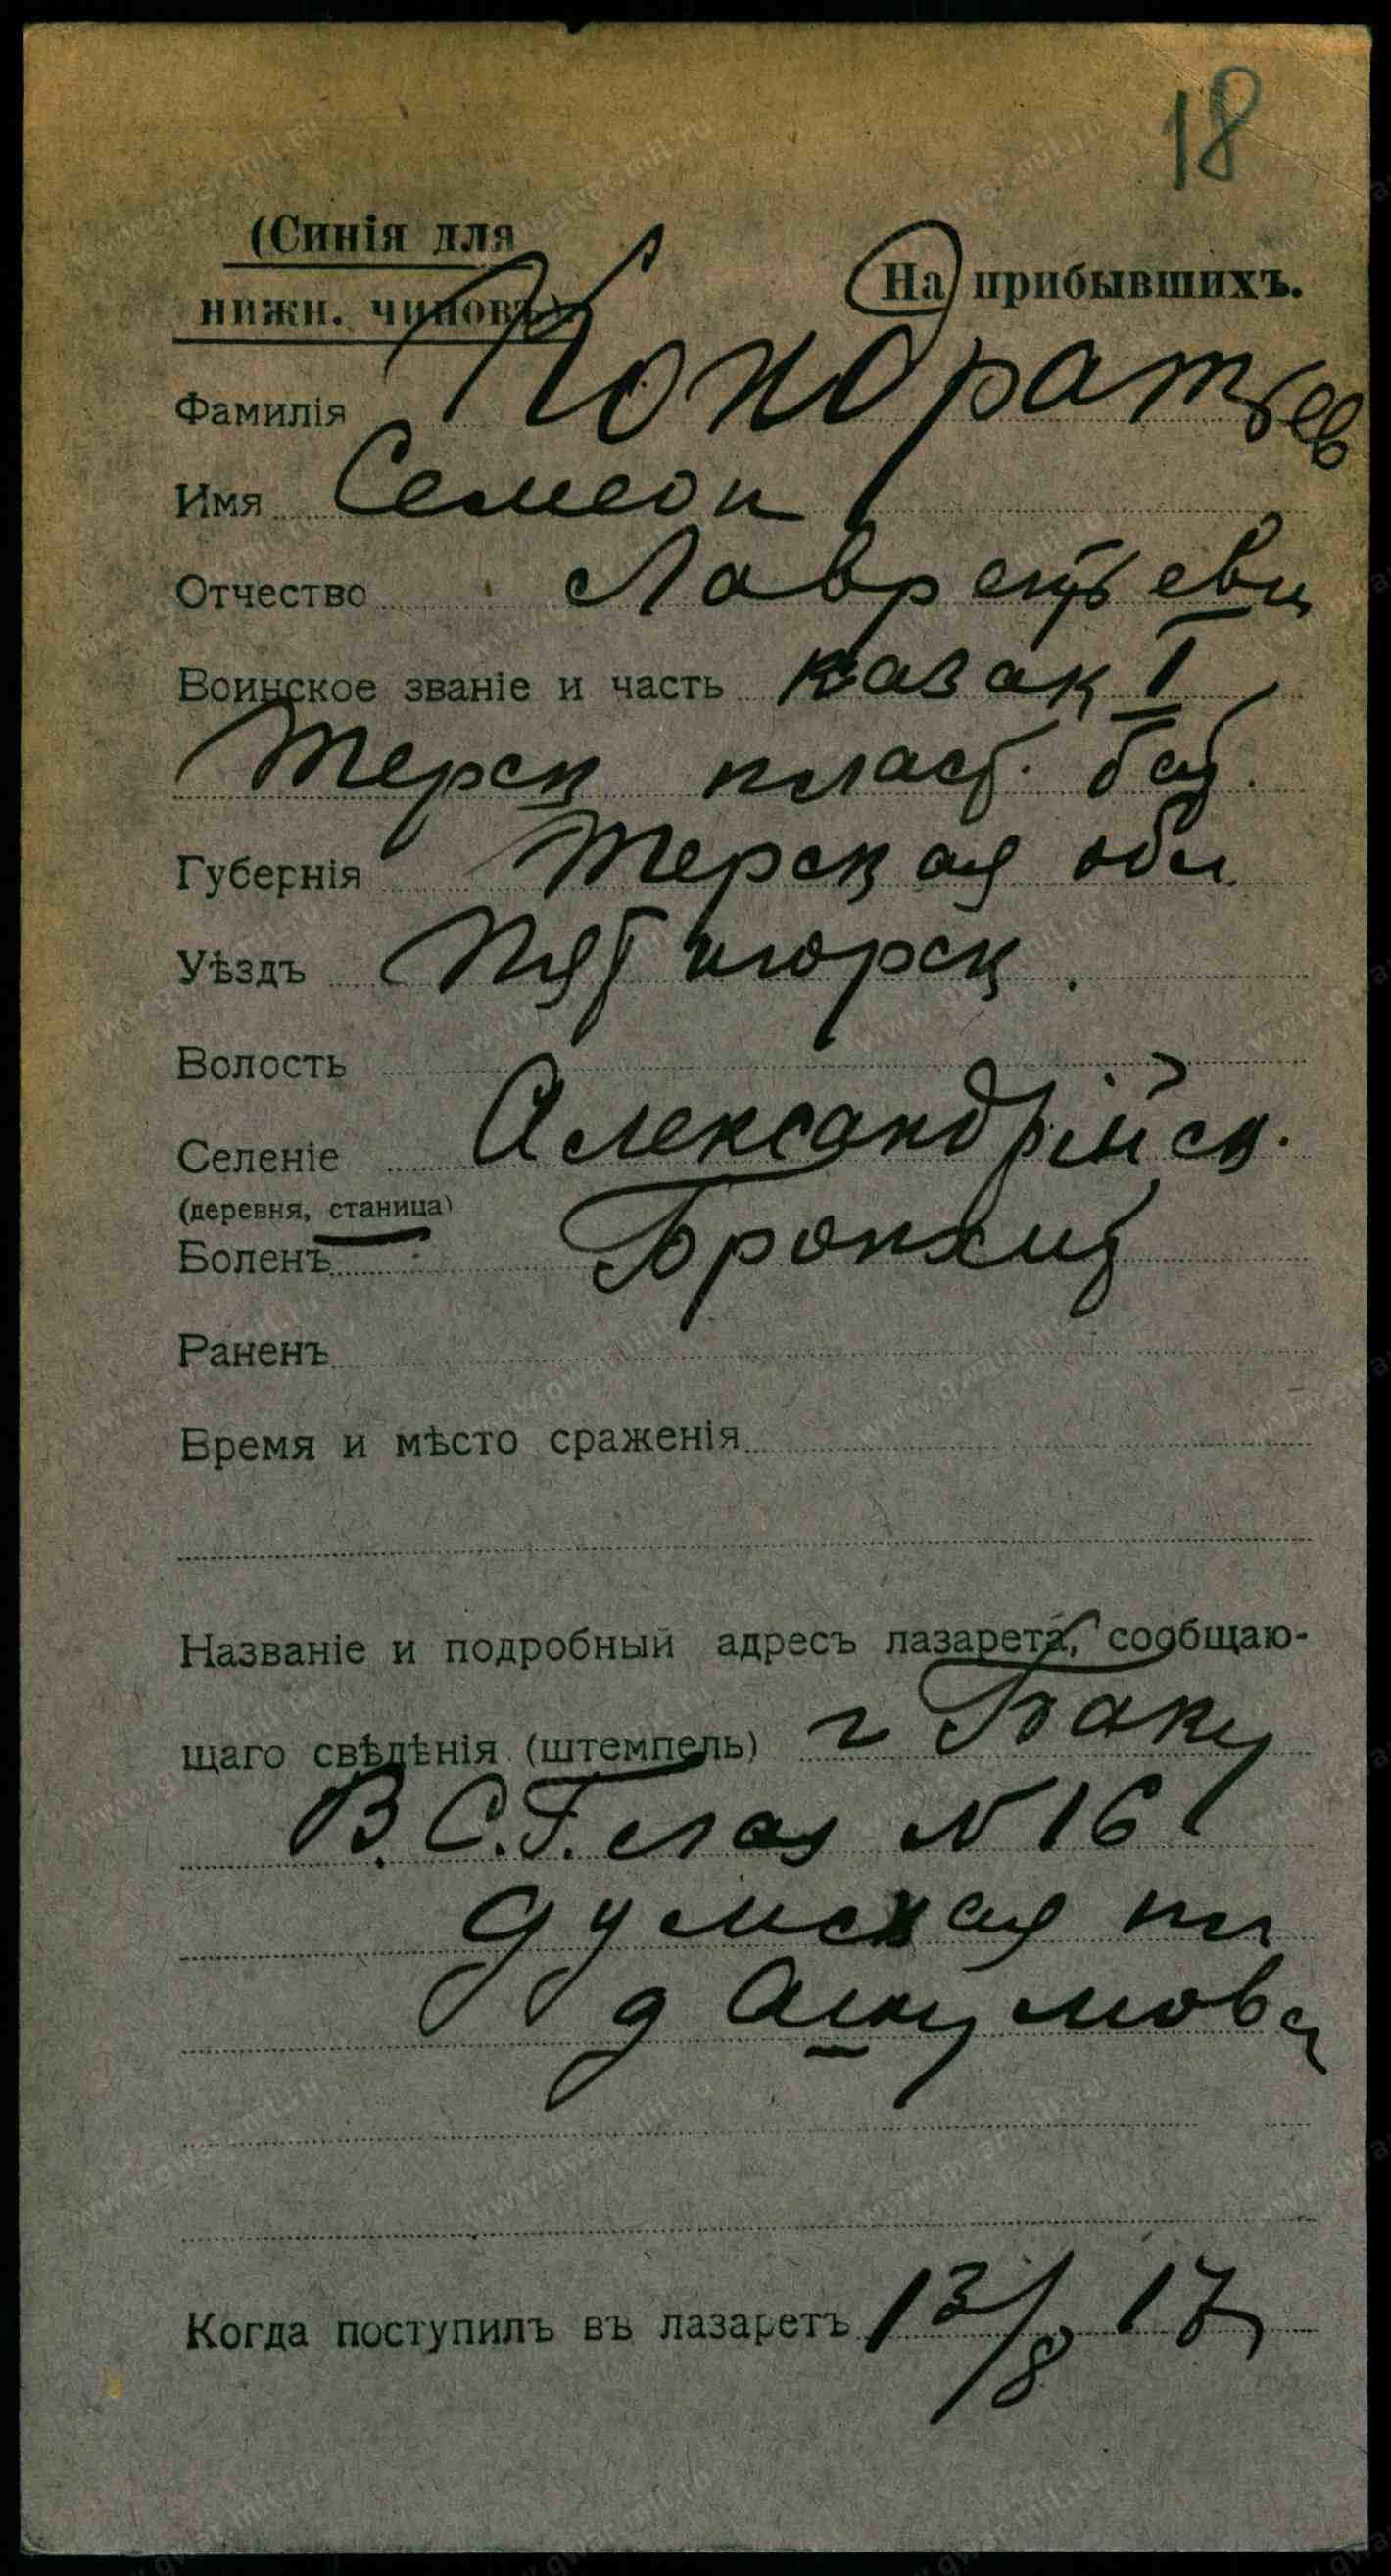 18
(Синія для
нижн. чиновъ)
На прибывшихъ.
Фамилія Кондратьев
Имя Семеон
Отчество Лаврентьеви
Воинское званіе и часть казак I
Терск пласт. бат.
Губернія Терская обл.
Уѣздъ Пятигорск.
Волость
Селеніе Александрійск.
(деревня, станица)
Боленъ Бронхит
Раненъ
Время и мѣсто сраженія
Названіе и подробный адресъ лазарета, сообщаю-
щаго свѣдѣнія (штемпель) г Баку
В.С.Г. лаз № 16
думская пл
д
Когда поступилъ въ лазаретъ 13/8 17